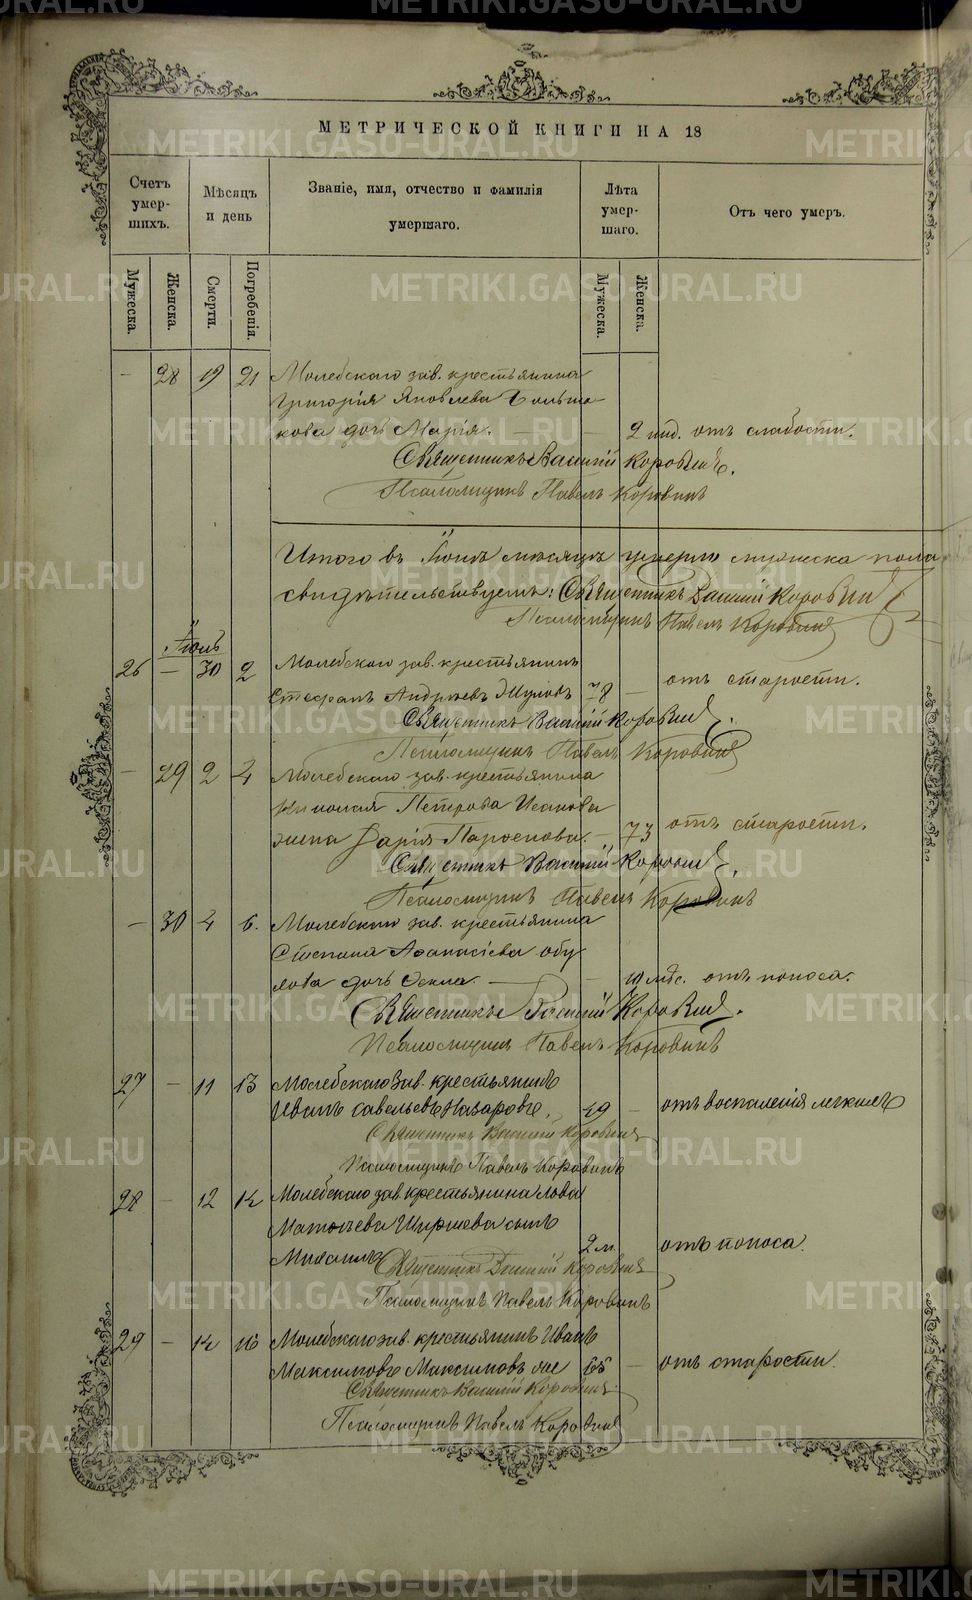 METRIKI.GASO-URAL.RU
МЕТРИЧЕСКОЙ КНИГИ НА 18
Счетъ умер-шихъ.
Мѣсяцъ и день
Званіе, имя, отчество и фамилія умершаго.
Лѣта умер-шаго.
Отъ чего умеръ.
Мужеска.
Женска.
Смерти.
Погребенія.
Мужеска.
Женска.
— 28 19 21 Молебскаго зав. крестьянина
Григорія Яковлева
кова дочь Марія. — — 2 нед. отъ слабости.
Священникъ Василій Коровинъ.
Псаломщикъ Павелъ Коровинъ
Итого въ Іюнѣ мѣсяцѣ умерло мужеска пола
свидѣтельствуемъ: Священникъ Василій Коровинъ
Псаломщикъ Павелъ Коровинъ
Іюль
26 — 30 2 Молебскаго зав. крестьянинъ
Стефанъ Андреевъ 78 — отъ старости.
Священникъ Василій Коровинъ.
Псаломщикъ Павелъ Коровинъ
— 29 2 4 Молебскаго зав. крестьянина
Николая Петрова Исакова
жена Дарія — 73 отъ старости.
Священникъ Василій Коровинъ.
Псаломщикъ Павелъ Коровинъ
— 30 4 6. Молебскаго зав. крестьянина
Степана Афанасіева обу
хова дочь — — 10 мѣс. отъ поноса.
Священникъ Василій Коровинъ.
Псаломщикъ Павелъ Коровинъ
27 — 11 13 Молебскаго зав. крестьянинъ
Иванъ Савельевъ Назаровъ. 49 — отъ воспаленія легкихъ
Священникъ Василій Коровинъ
Псаломщикъ Павелъ Коровинъ
28 — 12 14 Молебскаго зав. крестьянина Льва
Матвѣева Ширяева сынъ
Михаилъ 2 м. отъ поноса.
Священникъ Василій Коровинъ
Псаломщикъ Павелъ Коровинъ
29 — 14 16 Молебскаго зав. крестьянинъ Иванъ
Максимовъ 65 — отъ старости.
Священникъ Василій Коровинъ
Псаломщикъ Павелъ Коровинъ